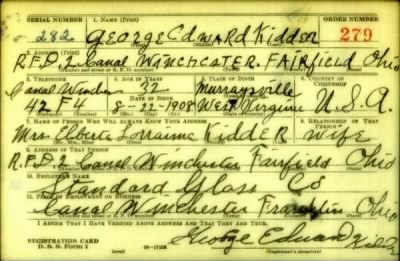 SERIAL NUMBER 1. NAME (Print) ORDER NUMBER
282 George Edward Kidder 279
2. ADDRESS (Print)
R.F.D. 2 Canal Winchester Fairfield Ohio
3. TELEPHONE 4. AGE IN YEARS 5. PLACE OF BIRTH 6. COUNTRY OF CITIZENSHIP
Canal Winches 32 Murraysville
DATE OF BIRTH
42 F 4 8-22-1908 West Virginia U.S.A.
7. NAME OF PERSON WHO WILL ALWAYS KNOW YOUR ADDRESS 8. RELATIONSHIP OF THAT PERSON
Mrs Elberta Lorraine Kidder Wife
9. ADDRESS OF THAT PERSON
R.F.D. 2 Canal Winchester Fairfield Ohio
10. EMPLOYER'S NAME
Standard Glass Co
11. PLACE OF EMPLOYMENT OR BUSINESS
Canal Winchester Franklin Ohio
I AFFIRM THAT I HAVE VERIFIED ABOVE ANSWERS AND THAT THEY ARE TRUE.
REGISTRATION CARD
D. S. S. Form 1 George Edward Kidder